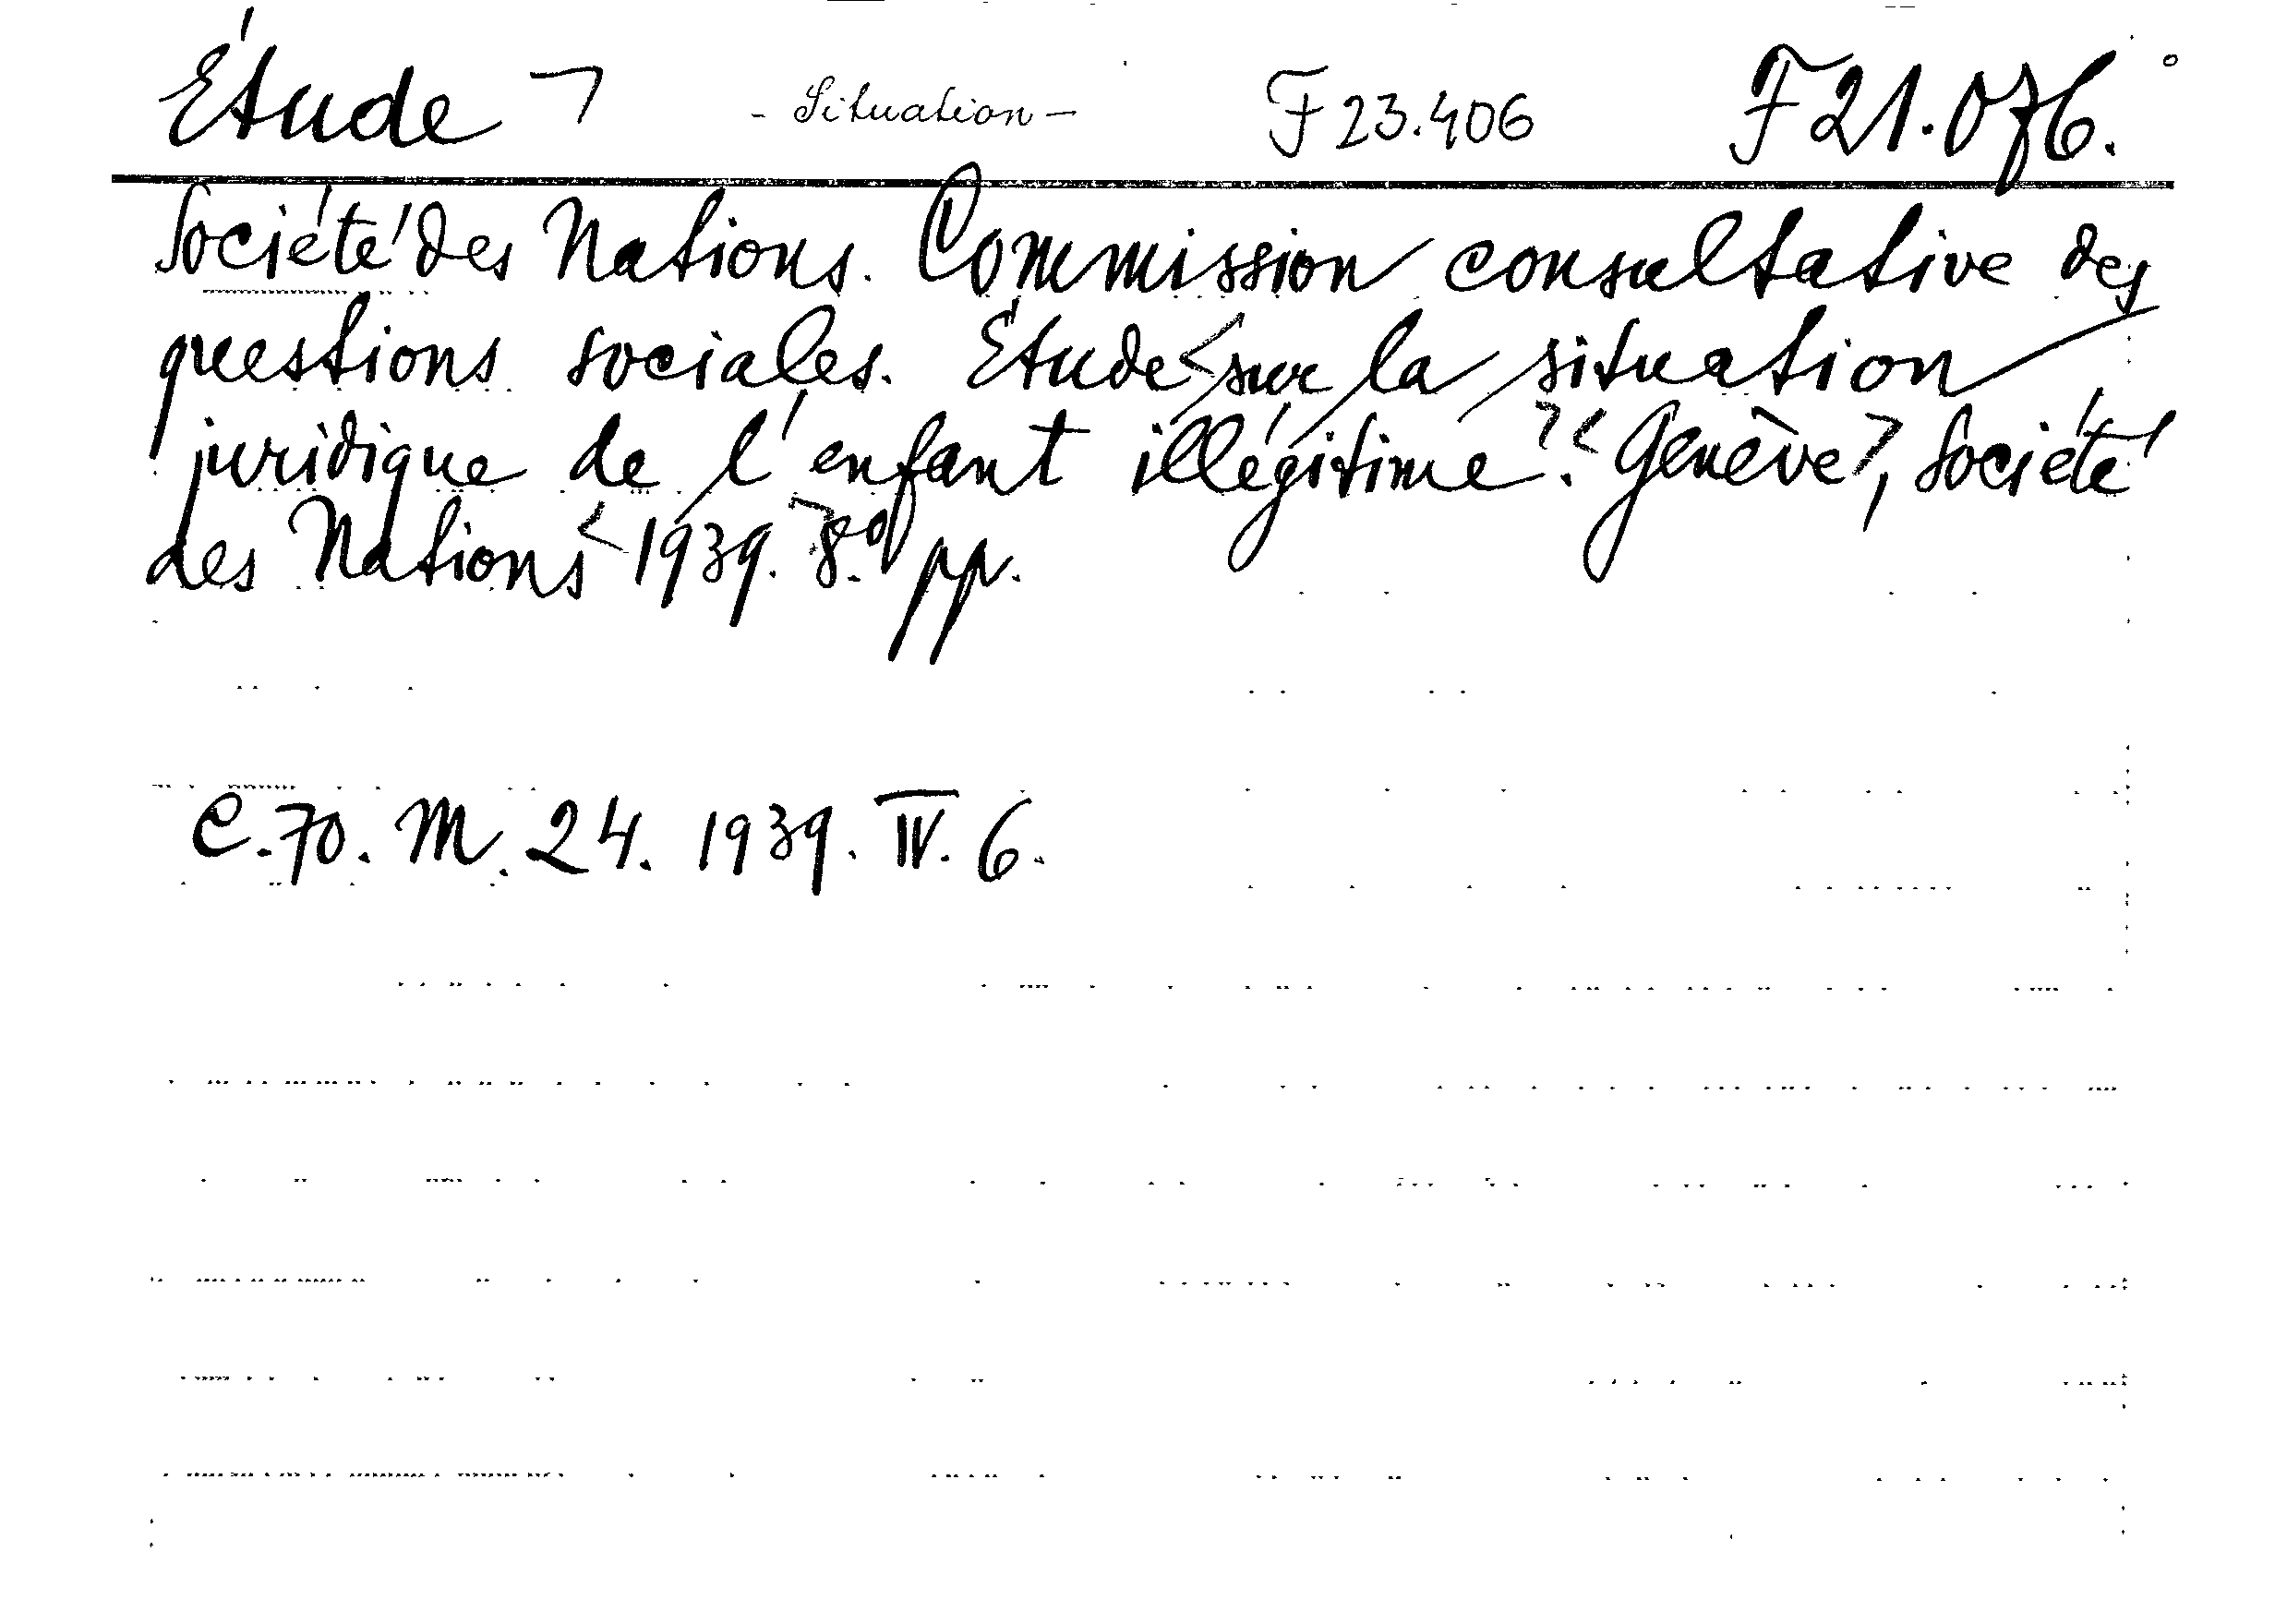 Étude ¬ - Situation - F 23.406 F 21.076.
Société des Nations. Commission consultative des
questions sociales. Étude < sur la situation
juridique de l'enfant illégitime >. < Genève >, Société
des Nations < 1939. > 8.º pp.
C.70. M. 24. 1939. IV. 6.